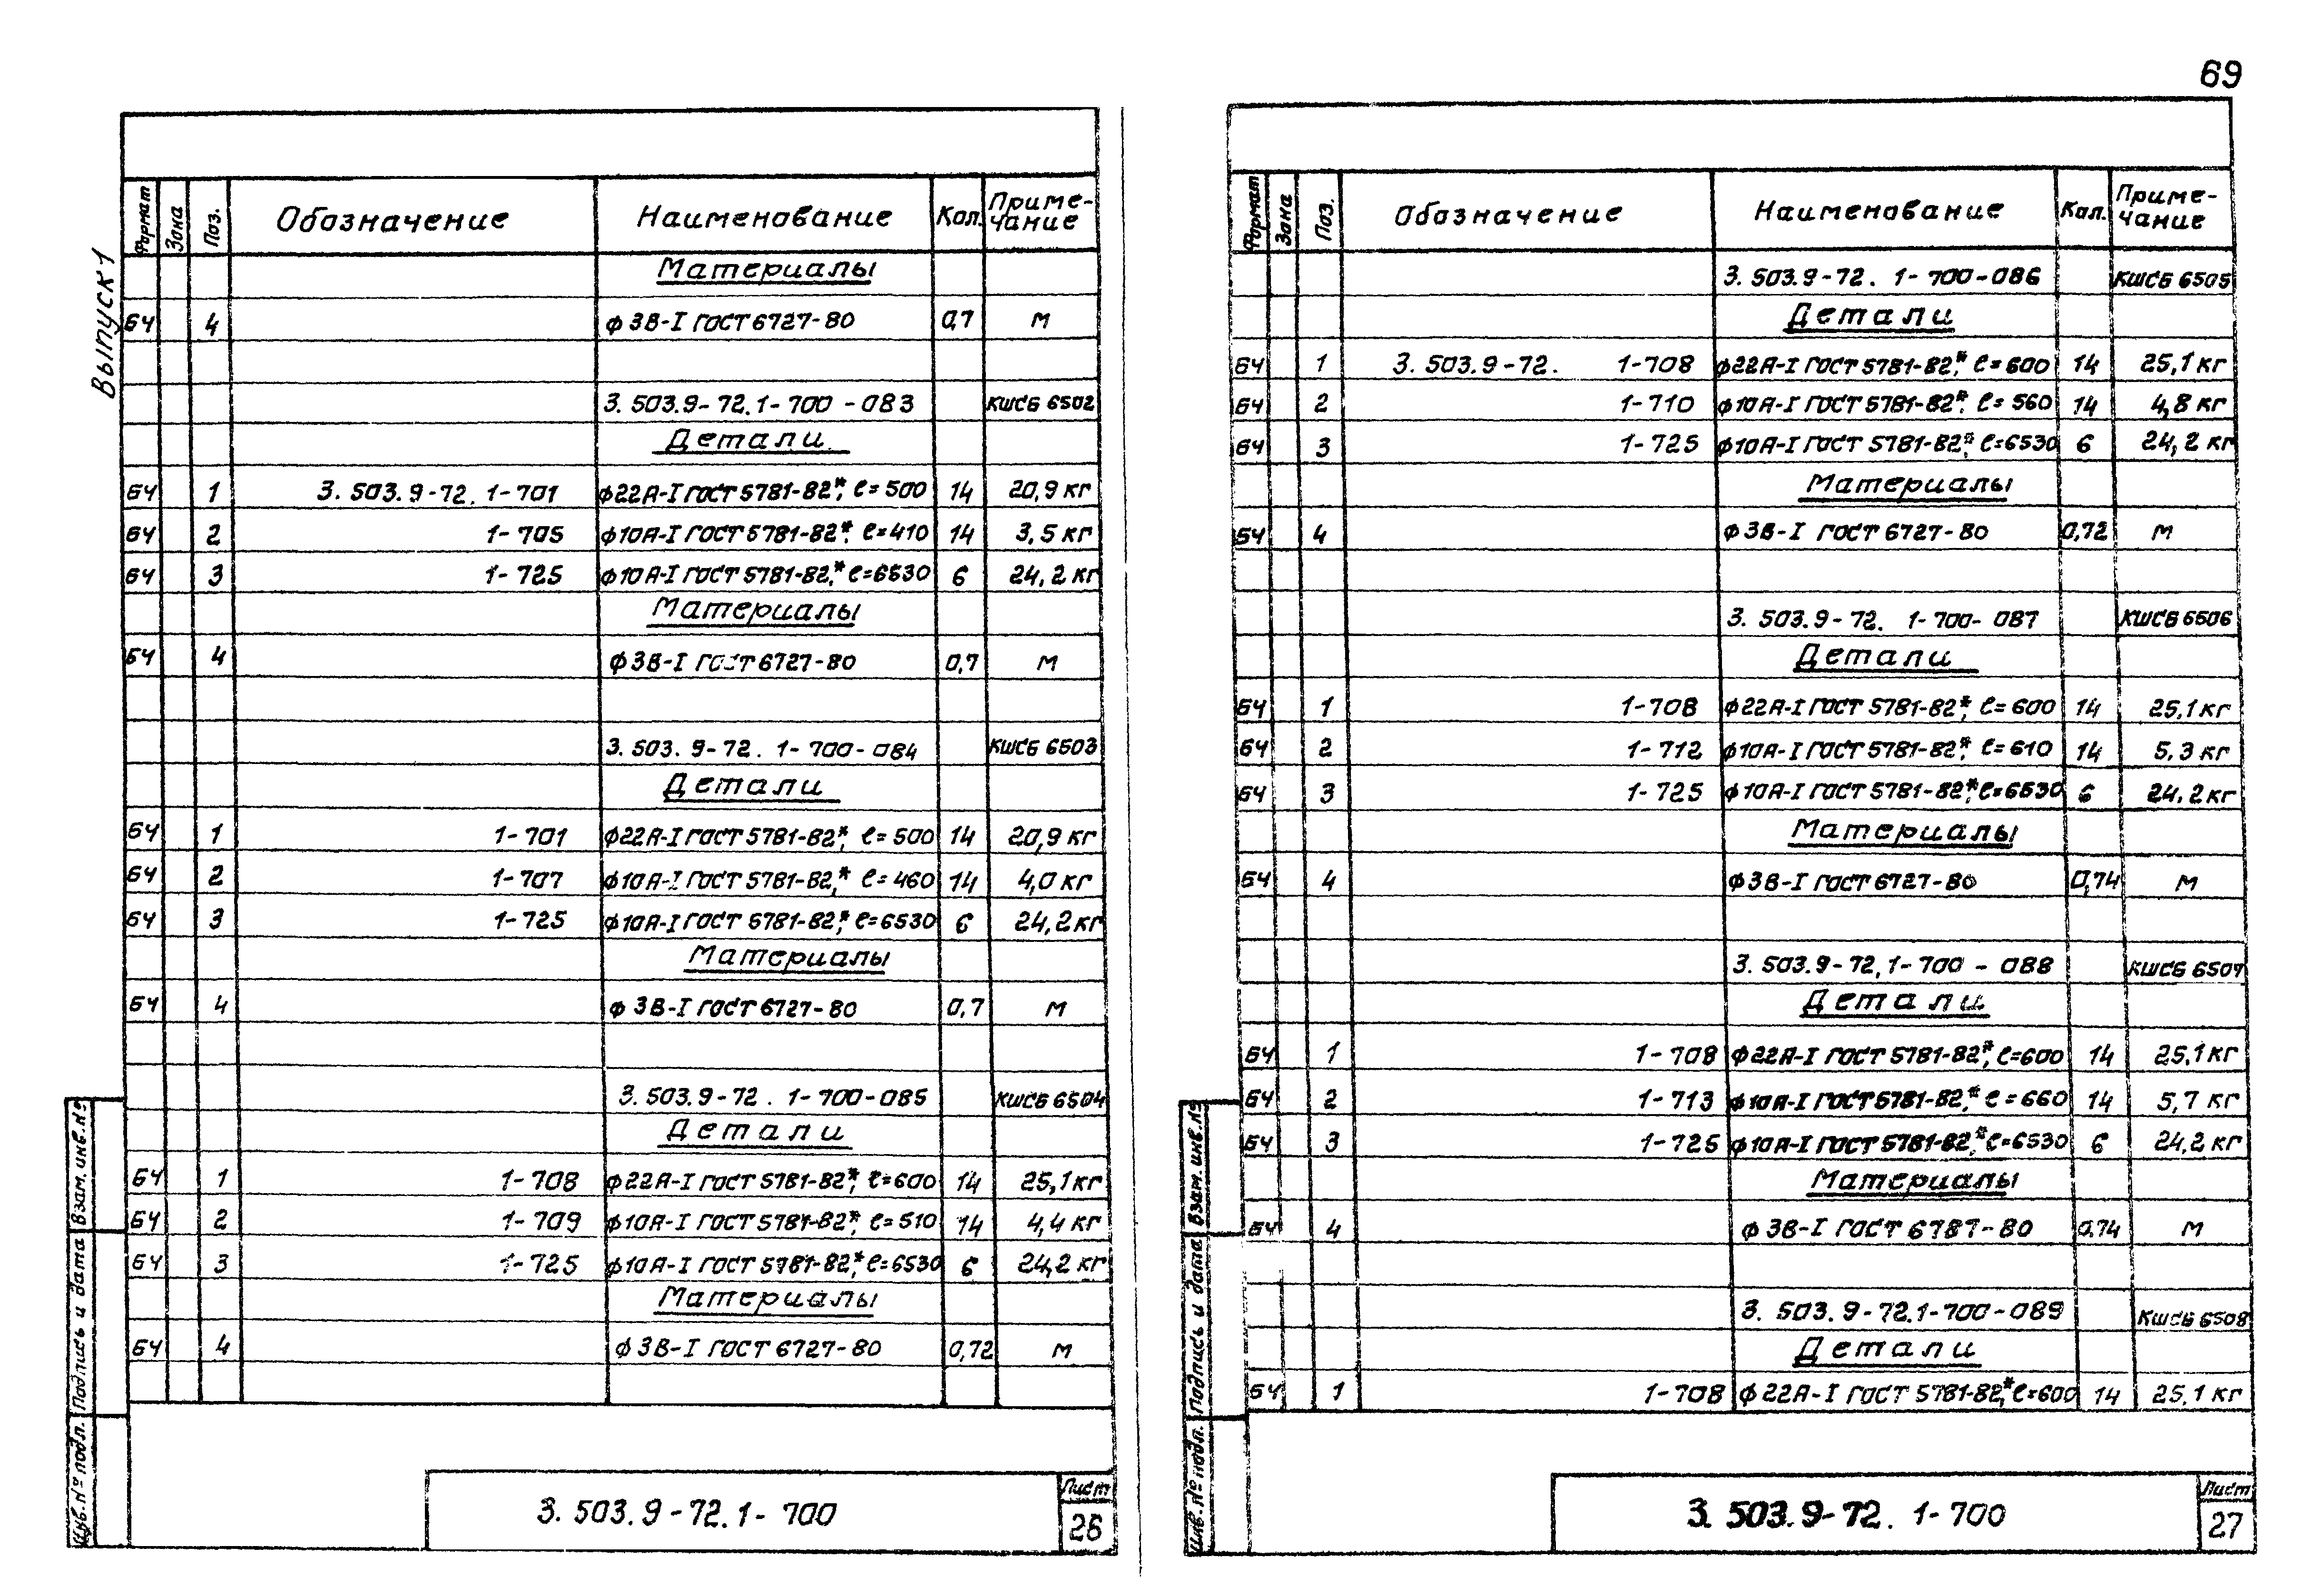 69
Выпуск 1
Формат Зона Поз. Обозначение Наименование Кол. Приме-чание
Материалы
БЧ 4 ф3В-I ГОСТ 6727-80 0,7 М
3.503.9-72.1-700-083 КШСБ 6502
Детали
БЧ 1 3.503.9-72.1-701 ф22А-I ГОСТ 5781-82*, ℓ=500 14 20,9 кг
БЧ 2 1-705 ф10А-I ГОСТ 5781-82*, ℓ=410 14 3,5 кг
БЧ 3 1-725 ф10А-I ГОСТ 5781-82,* ℓ=6530 6 24,2 кг
Материалы
БЧ 4 ф3В-I ГОСТ 6727-80 0,7 М
3.503.9-72.1-700-084 КШСБ 6503
Детали
БЧ 1 1-701 ф22А-I ГОСТ 5781-82*, ℓ=500 14 20,9 кг
БЧ 2 1-707 ф10А-I ГОСТ 5781-82,* ℓ=460 14 4,0 кг
БЧ 3 1-725 ф10А-I ГОСТ 5781-82*, ℓ=6530 6 24,2 кг
Материалы
БЧ 4 ф3В-I ГОСТ 6727-80 0,7 М
3.503.9-72.1-700-085 КШСБ 6504
Детали
БЧ 1 1-708 ф22А-I ГОСТ 5781-82*, ℓ=600 14 25,1 кг
БЧ 2 1-709 ф10А-I ГОСТ 5781-82*, ℓ=510 14 4,4 кг
БЧ 3 1-725 ф10А-I ГОСТ 5781-82*, ℓ=6530 6 24,2 кг
Материалы
БЧ 4 ф3В-I ГОСТ 6727-80 0,72 М
Инв. № подл. Подпись и дата Взам. инв. №
3.503.9-72.1-700
Лист
26
Формат Зона Поз. Обозначение Наименование Кол. Приме-чание
3.503.9-72.1-700-086 КШСБ 6505
Детали
БЧ 1 3.503.9-72. 1-708 ф22А-I ГОСТ 5781-82*, ℓ=600 14 25,1 кг
БЧ 2 1-710 ф10А-I ГОСТ 5781-82*, ℓ=560 14 4,8 кг
БЧ 3 1-725 ф10А-I ГОСТ 5781-82*, ℓ=6530 6 24,2 кг
Материалы
БЧ 4 ф3В-I ГОСТ 6727-80 0,72 М
3.503.9-72.1-700-087 КШСБ 6506
Детали
БЧ 1 1-708 ф22А-I ГОСТ 5781-82*, ℓ=600 14 25,1 кг
БЧ 2 1-712 ф10А-I ГОСТ 5781-82*, ℓ=610 14 5,3 кг
БЧ 3 1-725 ф10А-I ГОСТ 5781-82*, ℓ=6530 6 24,2 кг
Материалы
БЧ 4 ф3В-I ГОСТ 6727-80 0,74 М
3.503.9-72.1-700-088 КШСБ 6507
Детали
БЧ 1 1-708 ф22А-I ГОСТ 5781-82*, ℓ=600 14 25,1 кг
БЧ 2 1-713 ф10А-I ГОСТ 5781-82,* ℓ=660 14 5,7 кг
БЧ 3 1-725 ф10А-I ГОСТ 5781-82,* ℓ=6530 6 24,2 кг
Материалы
БЧ 4 ф3В-I ГОСТ 6787-80 0,74 М
3.503.9-72.1-700-089 КШСБ 6508
Детали
БЧ 1 1-708 ф22А-I ГОСТ 5781-82,* ℓ=600 14 25,1 кг
Инв. № подл. Подпись и дата Взам. инв. №
3.503.9-72.1-700
Лист
27